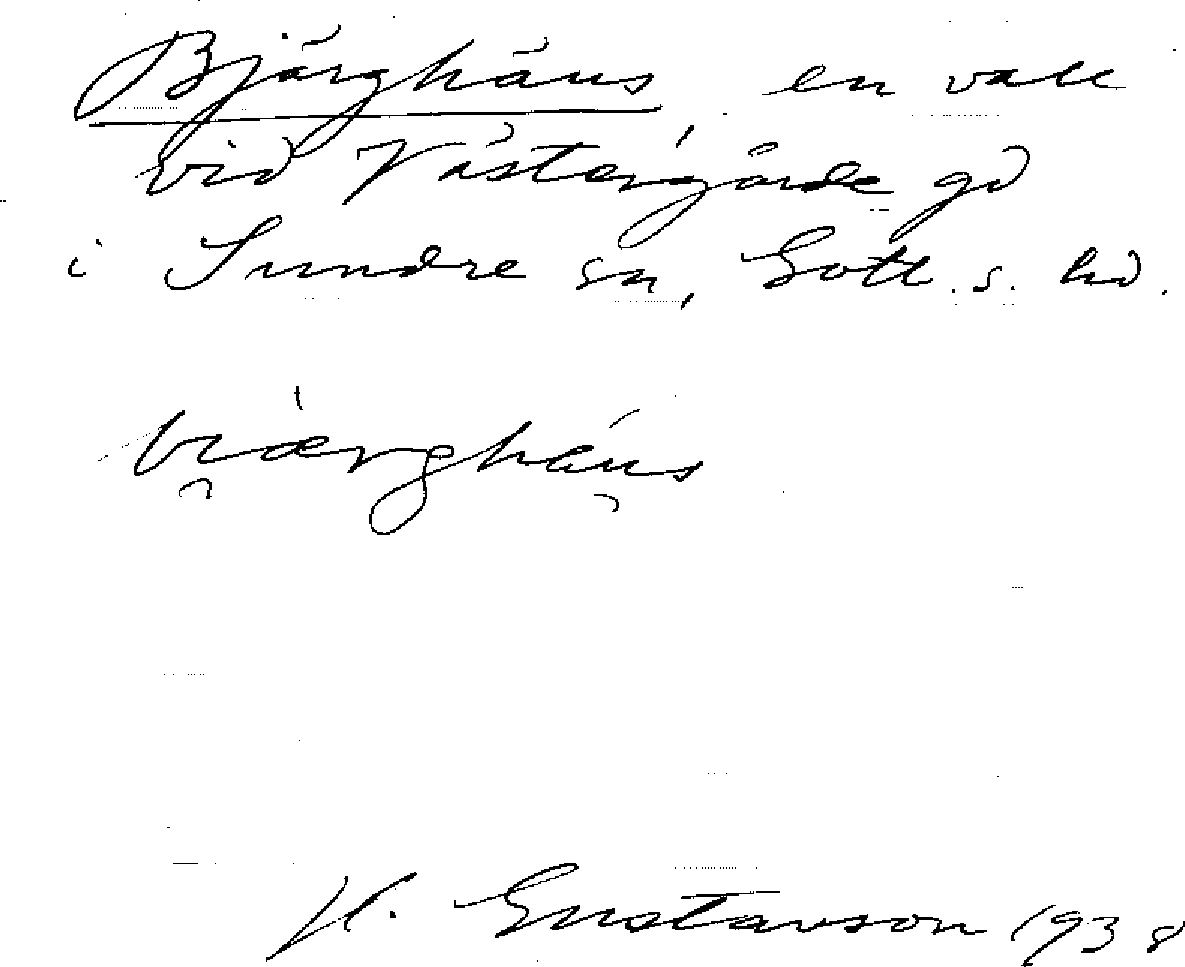 Bjärghäus, en vall
vid Västergårde gd
i Sundre sn, Gotl. s. hd.
bi̯ærghéu̯s
H. Gustavson 1938